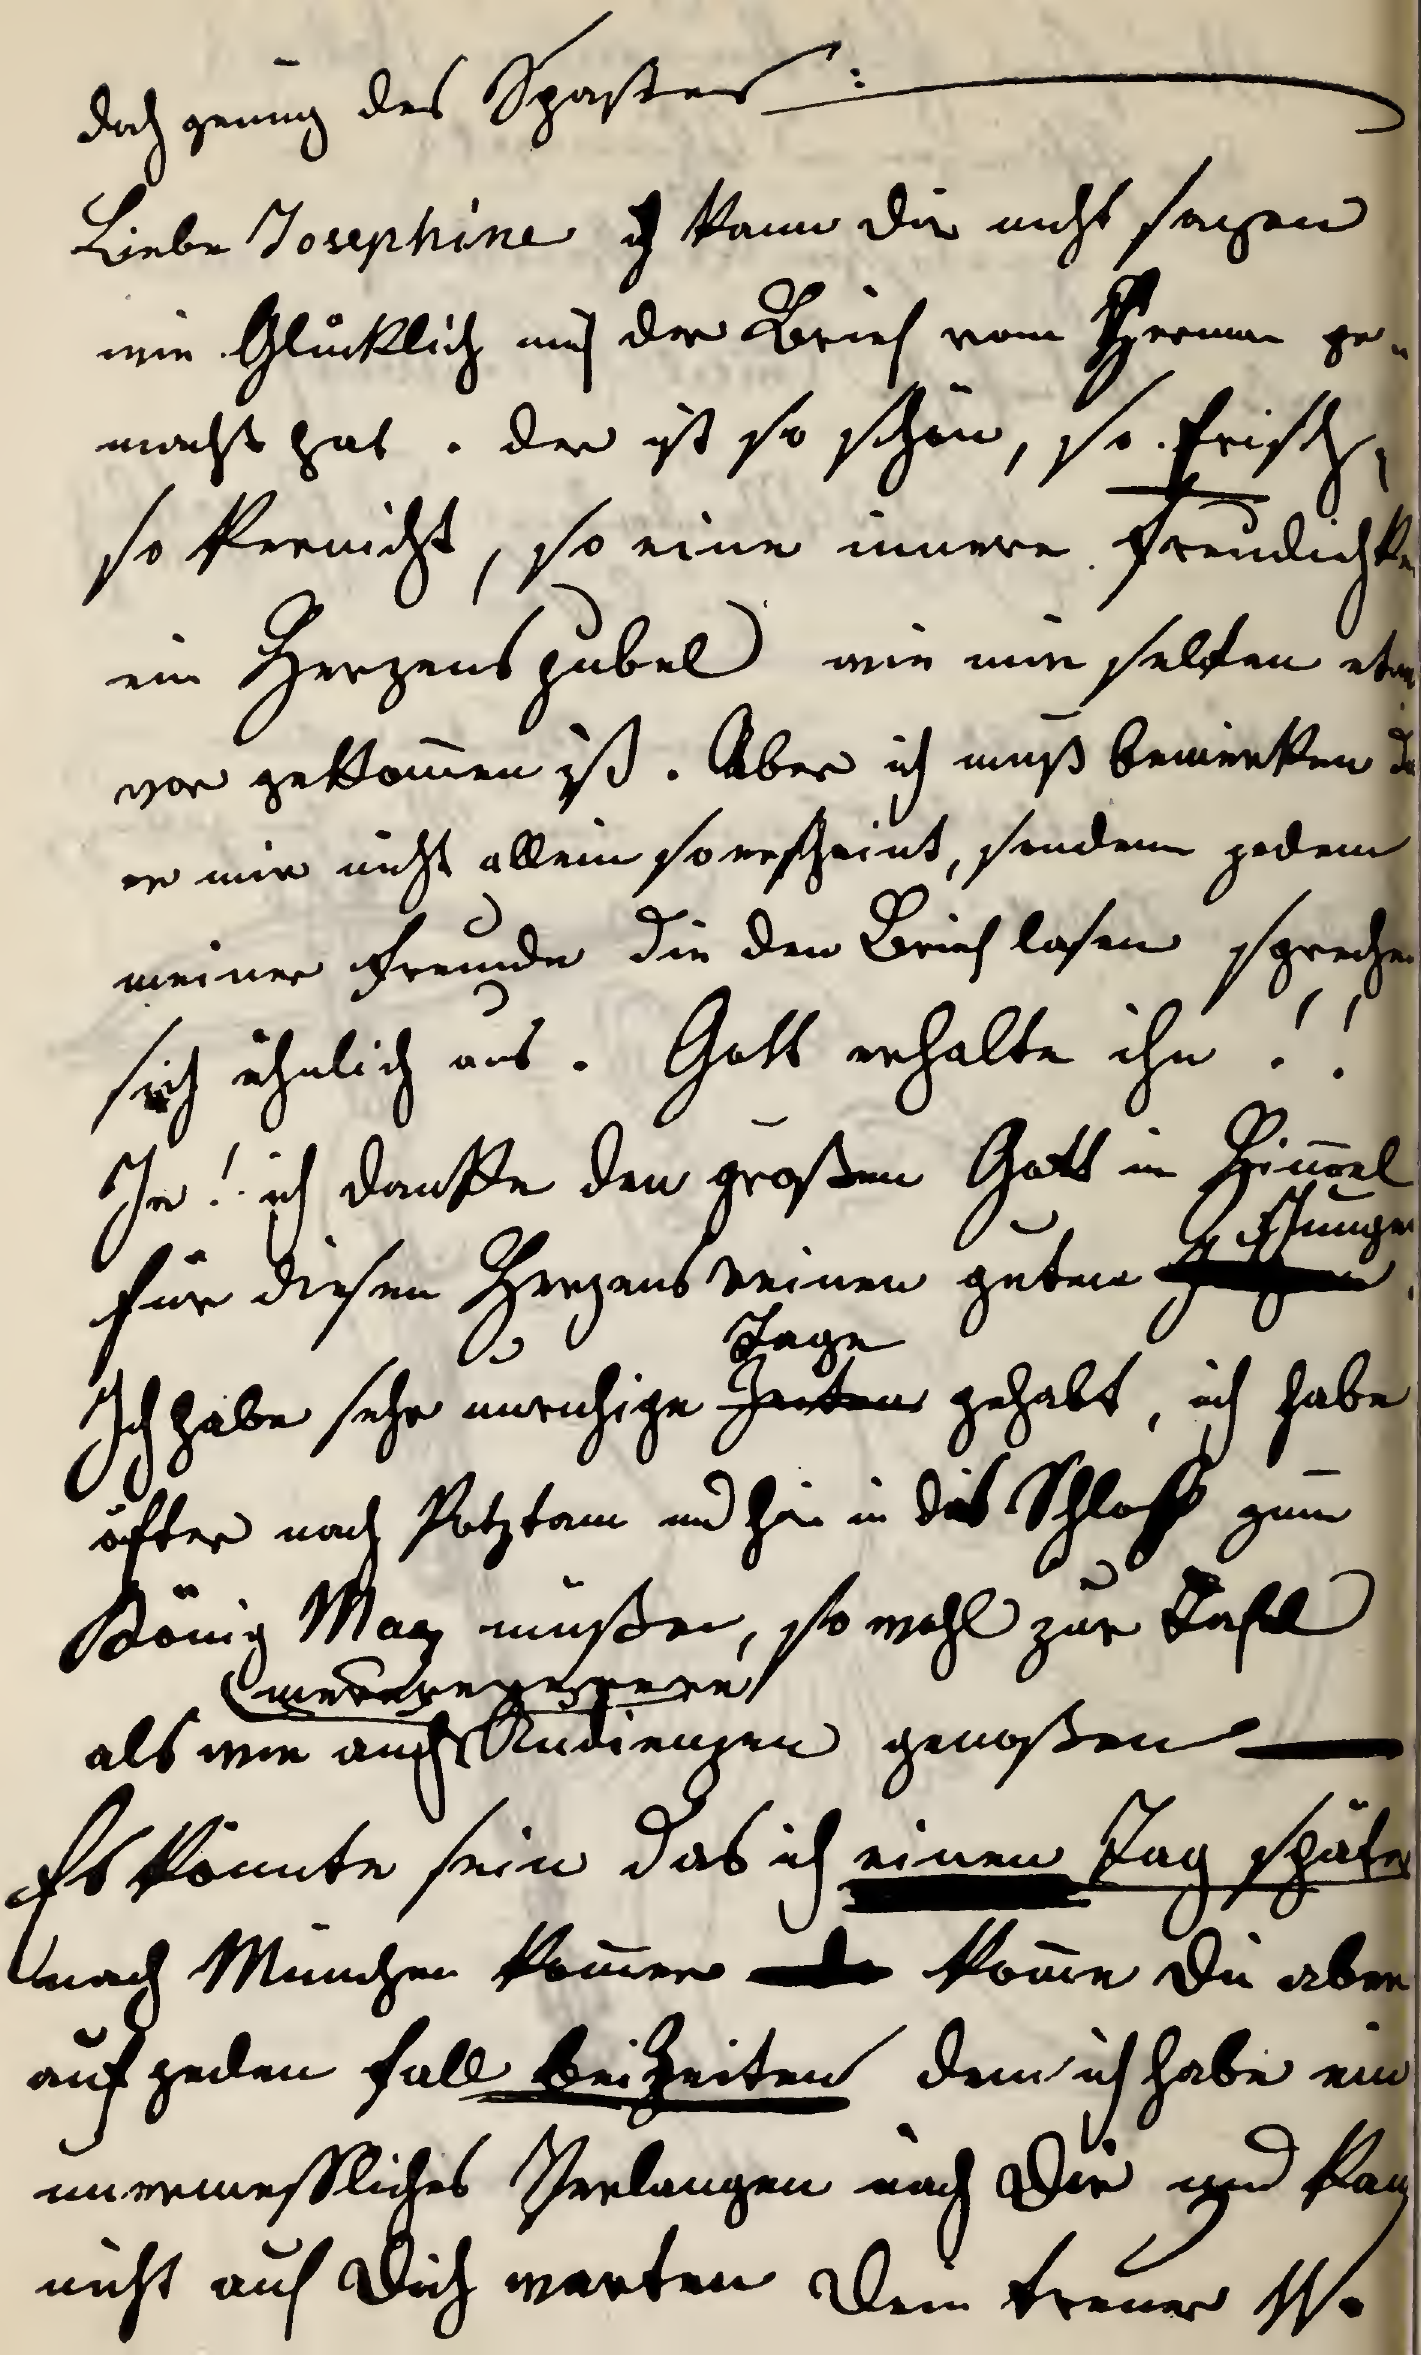 doch genug des Spaßes :
Liebe Josephine ich kann dir nicht sagen
wie Glücklich mich der Brief vom Herman ge-
macht hat. der ist so schön, so frisch,
so kernicht, so eine innere Freudichke
ein Herzensjubel wie mir selten etw
vor gekom̄en ist. Aber ich muß bemerken da
er mir nicht allein so erscheint, sondern jedem
meiner Freunde die den Brief lasen spreche
sich ähnlich aus. Gott erhalte ihn !!
Ja! ich danke den großen Gott in Him̄el
für diesen Herzens reinen guten Jungen.
Ich habe sehr unruhige Tage gehabt, ich habe
öfter nach Potztam und hir in das Schloß zum
König Max müßen, so wohl zur Tafel
als wie auch Audienzen genoßen —
Es könnte sein das ich einen Tag später
nach München kom̄e kom̄e Du aber
auf jeden Fall bei Zeiten den ich habe ein
unermessliches Verlangen nach Dir und kan
nicht auf Dich warten Dein treuer W.